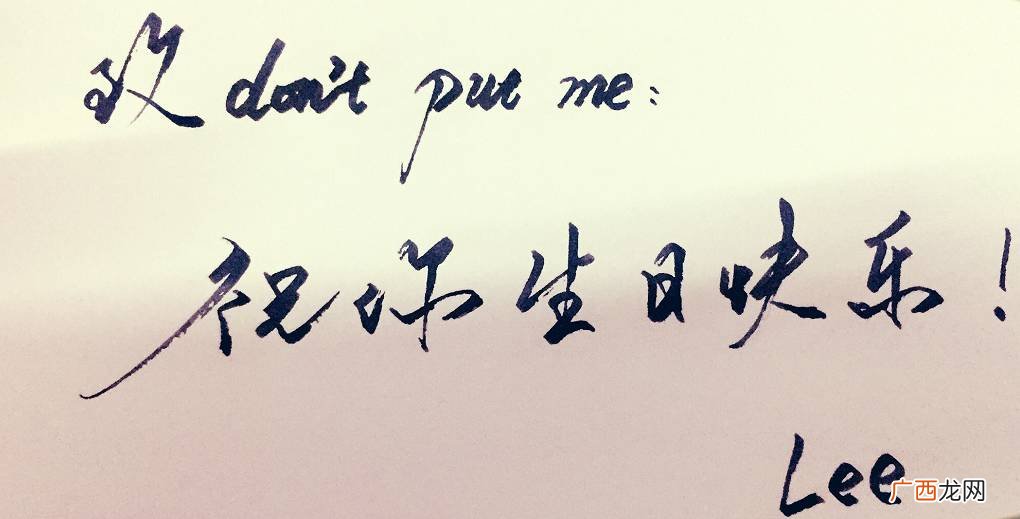 致 don't put me:
祝你生日快乐!
Lee
广西龙网